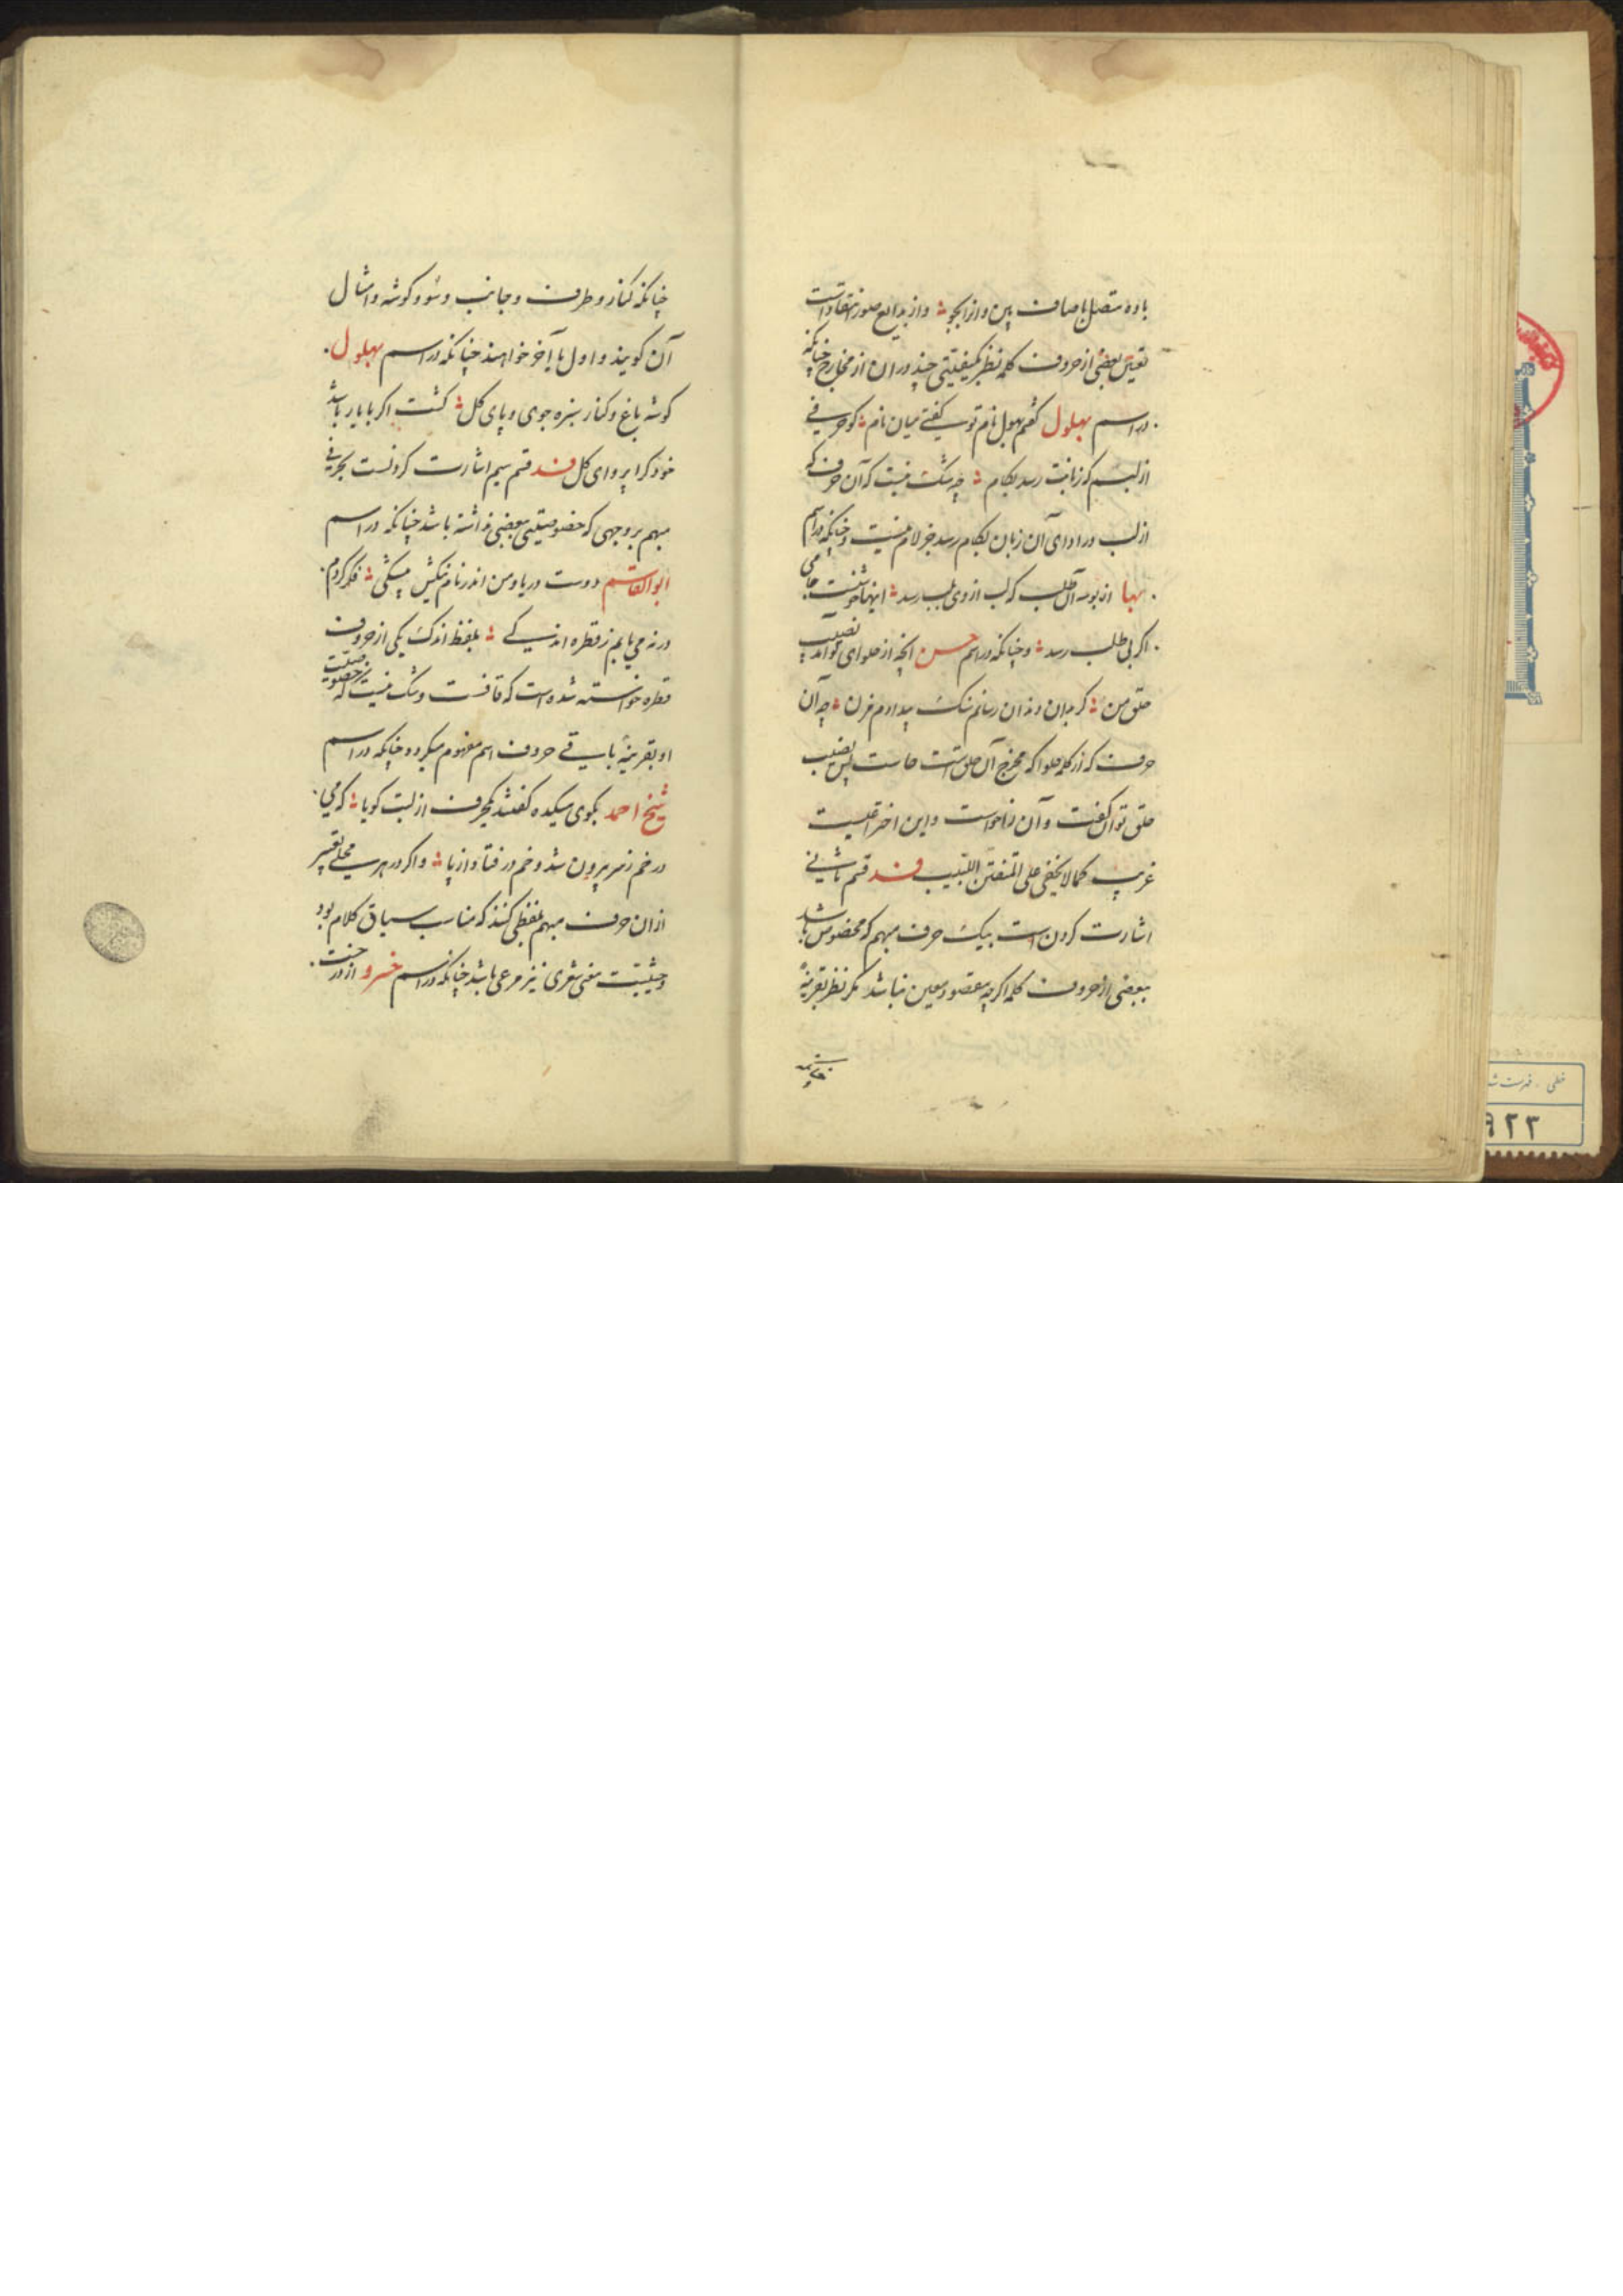 باده متصل با صاف بین و انرا بجو ؞ و از بدایع صور انتقاد است
تعیین بعضی از حروف کلمه نظر بکیفیتی چند در ان از مخارج چنانکه
در اسم بهلول گفتم بهول نام تو گفتی میان نام ؞ کو حرفی
از لبم که زبانت رسد بکام ؞ چه شک نیست که آن حرف که
از لب در ادای آن زبان بکام رسد جز لام نیست و چنانکه در اسم
بها از بوسه آن طلب که لب از وی بلب رسد ؞ اینها خوشست جامی
اگر بی طلب رسد ؞ و چنانکه در اسم حسن انچه از حلوای تو آمد نصیب
حلق من ؞ گر بدان دندان رسانم سنک بر دندانم مزن ؞ چه آن
حرف که از کلمه حلوا که مخرج آن حلق است حاست پس نصیب
حلق توان گفت و آن را خواست و این اختراعیست
غریب کما لا یخفی علی المتفطن اللبیب قسم ثانی
اشارت کردن است بیک حرف مبهم که مخصوص باشد
ببعضی از حروف کلمه اگر چه مقصود معین نباشد مگر نظر بقرینه
چنانکه
چنانکه کنار و طرف و جانب و سو و کوشه و امثال
آن کویند و اول یا آخر خواهند چنانکه در اسم بهلول
کوشه باغ و کنار سبزه جوی و پای کل ؞ کشت اکر با یار باشد
خود کرا پروای کل قسم سیم اشارت کردنست بحرفی
مبهم بر وجهی که خصوصیتی ببعضی نداشته باشد چنانکه در اسم
ابوالقاسم دوست دریا و من اندر نام نیکش میشکی ؞ فکر کردم
در نه می یابم ز قطره اندکی ؞ بلفظ اندک یکی از حروف
قطره خواسته شده است که قافست و شک نیست که خصوصیت
او بقرینه باقی حروف اسم مفهوم میکردد چنانکه در اسم
شیخ احمد بکوی میکده گفتند یکحرف از لبت کویا ؞ که می
در خم ز سر بیرون شد و خم در فتاد از پا ؞ و اکر در هر محلی تعبیر
از ان حرف مبهم بلفظی کنند که مناسب سیاق کلام بود
و حیثیت معنی شعری نیز مرعی باشد چنانکه در اسم خسرو از درخت
خطی - فهرست شد
۹۲۳